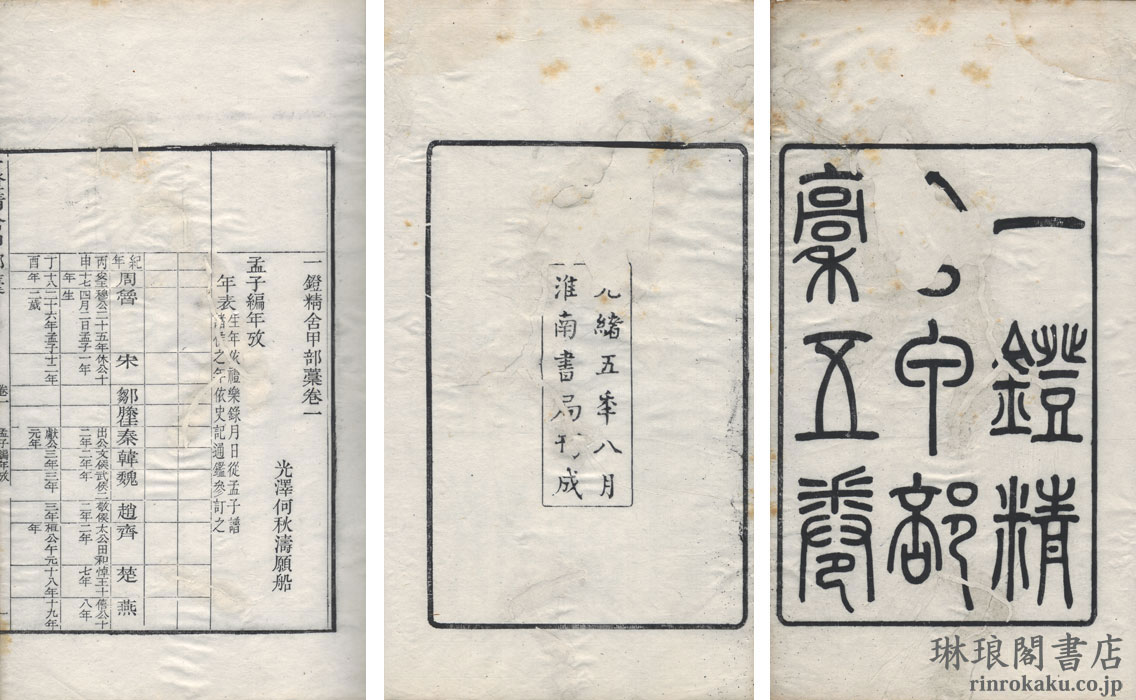 一鐙精
甲部
稾五卷
光緒五秊八月
淮南書局刊成
一鐙精舍甲部藁卷一
光澤何秋濤願船
孟子編年攷
年表
生年依禮樂錄月日從孟子譜
諸侯之年依史記通鑑參訂之
紀年 周 魯 宋 鄒 滕 秦 韓 魏 趙 齊 楚 燕
丙 安王穆公二十五年休公十 出公文侯武侯二敬侯太公田和悼王十僖公十
申 十七四月二日孟子一年 二年二年年 二年二年 七年 八年
年生
丁十八二十六年孟子十二年 獻公三年三年 三年桓公午元十八年十九年
酉年 二歲 元年 年
卷一
孟子編年攷
一
琳琅閣書店
rinrokaku.co.jp